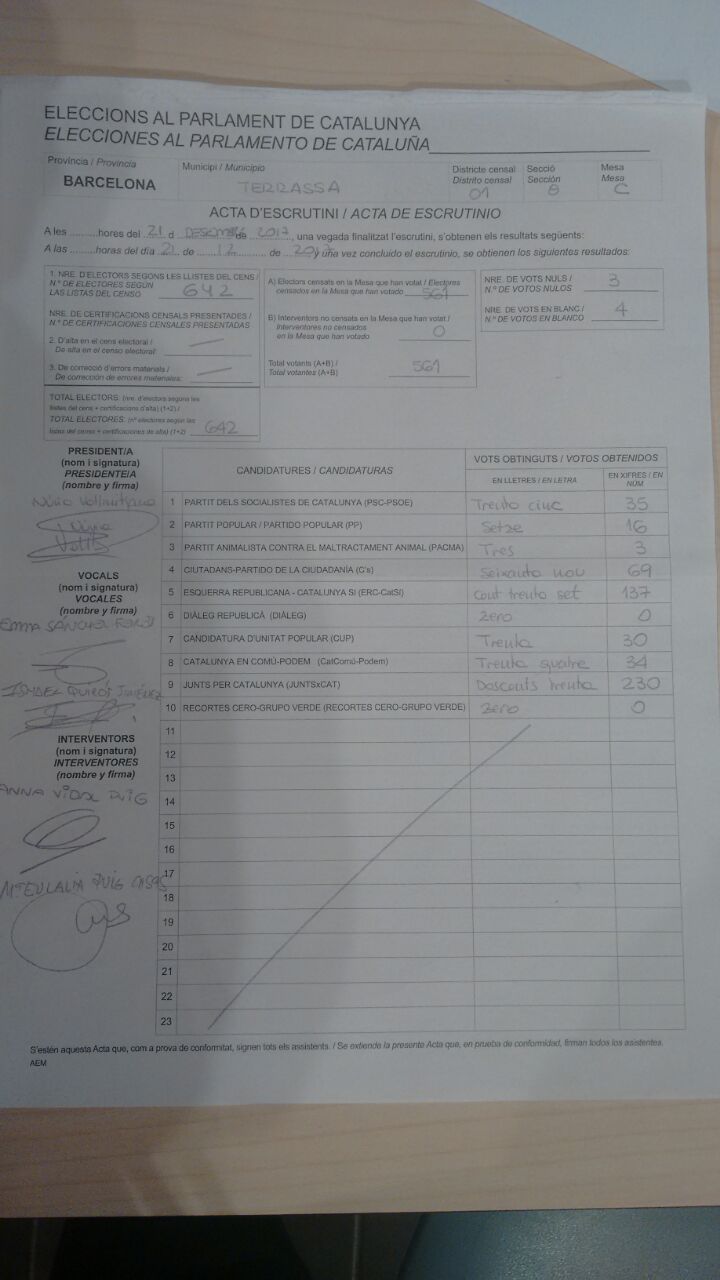 ELECCIONS AL PARLAMENT DE CATALUNYA
ELECCIONES AL PARLAMENTO DE CATALUÑA
Província / Provincia
BARCELONA
Municipi / Municipio
TERRASSA
Districte censal
Distrito censal
01
Secció
Sección
8
Mesa
Mesa
C
ACTA D'ESCRUTINI / ACTA DE ESCRUTINIO
A les .........hores del 21 d de 2017, una vegada finalitzat l'escrutini, s'obtenen els resultats següents:
A las .........horas del día 21 de 12 de 2017 y una vez concluido el escrutinio, se obtienen los siguientes resultados:
1. NRE. D'ELECTORS SEGONS LES LLISTES DEL CENS /
N.º DE ELECTORES SEGÚN
LAS LISTAS DEL CENSO
642
NRE. DE CERTIFICACIONS CENSALS PRESENTADES /
N.º DE CERTIFICACIONES CENSALES PRESENTADAS
2. D'alta en el cens electoral /
De alta en el censo electoral:
3. De correcció d'errors materials /
De corrección de errores materiales:
TOTAL ELECTORS: (nre. d'electors segons les
llistes del cens + certificacions d'alta) (1+2) /
TOTAL ELECTORES: (nº electores según las
listas del censo + certificaciones de alta) (1+2)
642
A) Electors censats en la Mesa que han votat / Electores
censados en la Mesa que han votado
561
B) Interventors no censats en la Mesa que han votat /
Interventores no censados
en la Mesa que han votado
0
Total votants (A+B) /
Total votantes (A+B)
561
NRE. DE VOTS NULS /
N.º DE VOTOS NULOS
3
NRE. DE VOTS EN BLANC /
N.º DE VOTOS EN BLANCO
4
PRESIDENT/A
(nom i signatura)
PRESIDENTE/A
(nombre y firma)
VOCALS
(nom i signatura)
VOCALES
(nombre y firma)
EMMA SÁNCHEZ
ISMAEL QUIRÓS JIMÉNEZ
INTERVENTORS
(nom i signatura)
INTERVENTORES
(nombre y firma)
ANNA VIDAL PUIG
M. EULALIA PUIG CASAS
CANDIDATURES / CANDIDATURAS
VOTS OBTINGUTS / VOTOS OBTENIDOS
EN LLETRES / EN LETRA
EN XIFRES / EN NÚM
1 PARTIT DELS SOCIALISTES DE CATALUNYA (PSC-PSOE) Trenta cinc 35
2 PARTIT POPULAR / PARTIDO POPULAR (PP) Setze 16
3 PARTIT ANIMALISTA CONTRA EL MALTRACTAMENT ANIMAL (PACMA) Tres 3
4 CIUTADANS-PARTIDO DE LA CIUDADANÍA (C's) Seixanta nou 69
5 ESQUERRA REPUBLICANA - CATALUNYA SI (ERC-CatSI) Cent trenta set 137
6 DIÀLEG REPUBLICÀ (DIÀLEG) Zero 0
7 CANDIDATURA D'UNITAT POPULAR (CUP) Trenta 30
8 CATALUNYA EN COMÚ-PODEM (CatComú-Podem) Trenta quatre 34
9 JUNTS PER CATALUNYA (JUNTSxCAT) Doscents trenta 230
10 RECORTES CERO-GRUPO VERDE (RECORTES CERO-GRUPO VERDE) Zero 0
11
12
13
14
15
16
17
18
19
20
21
22
23
S'estén aquesta Acta que, com a prova de conformitat, signen tots els assistents. / Se extiende la presente Acta que, en prueba de conformidad, firman todos los asistentes.
AEM